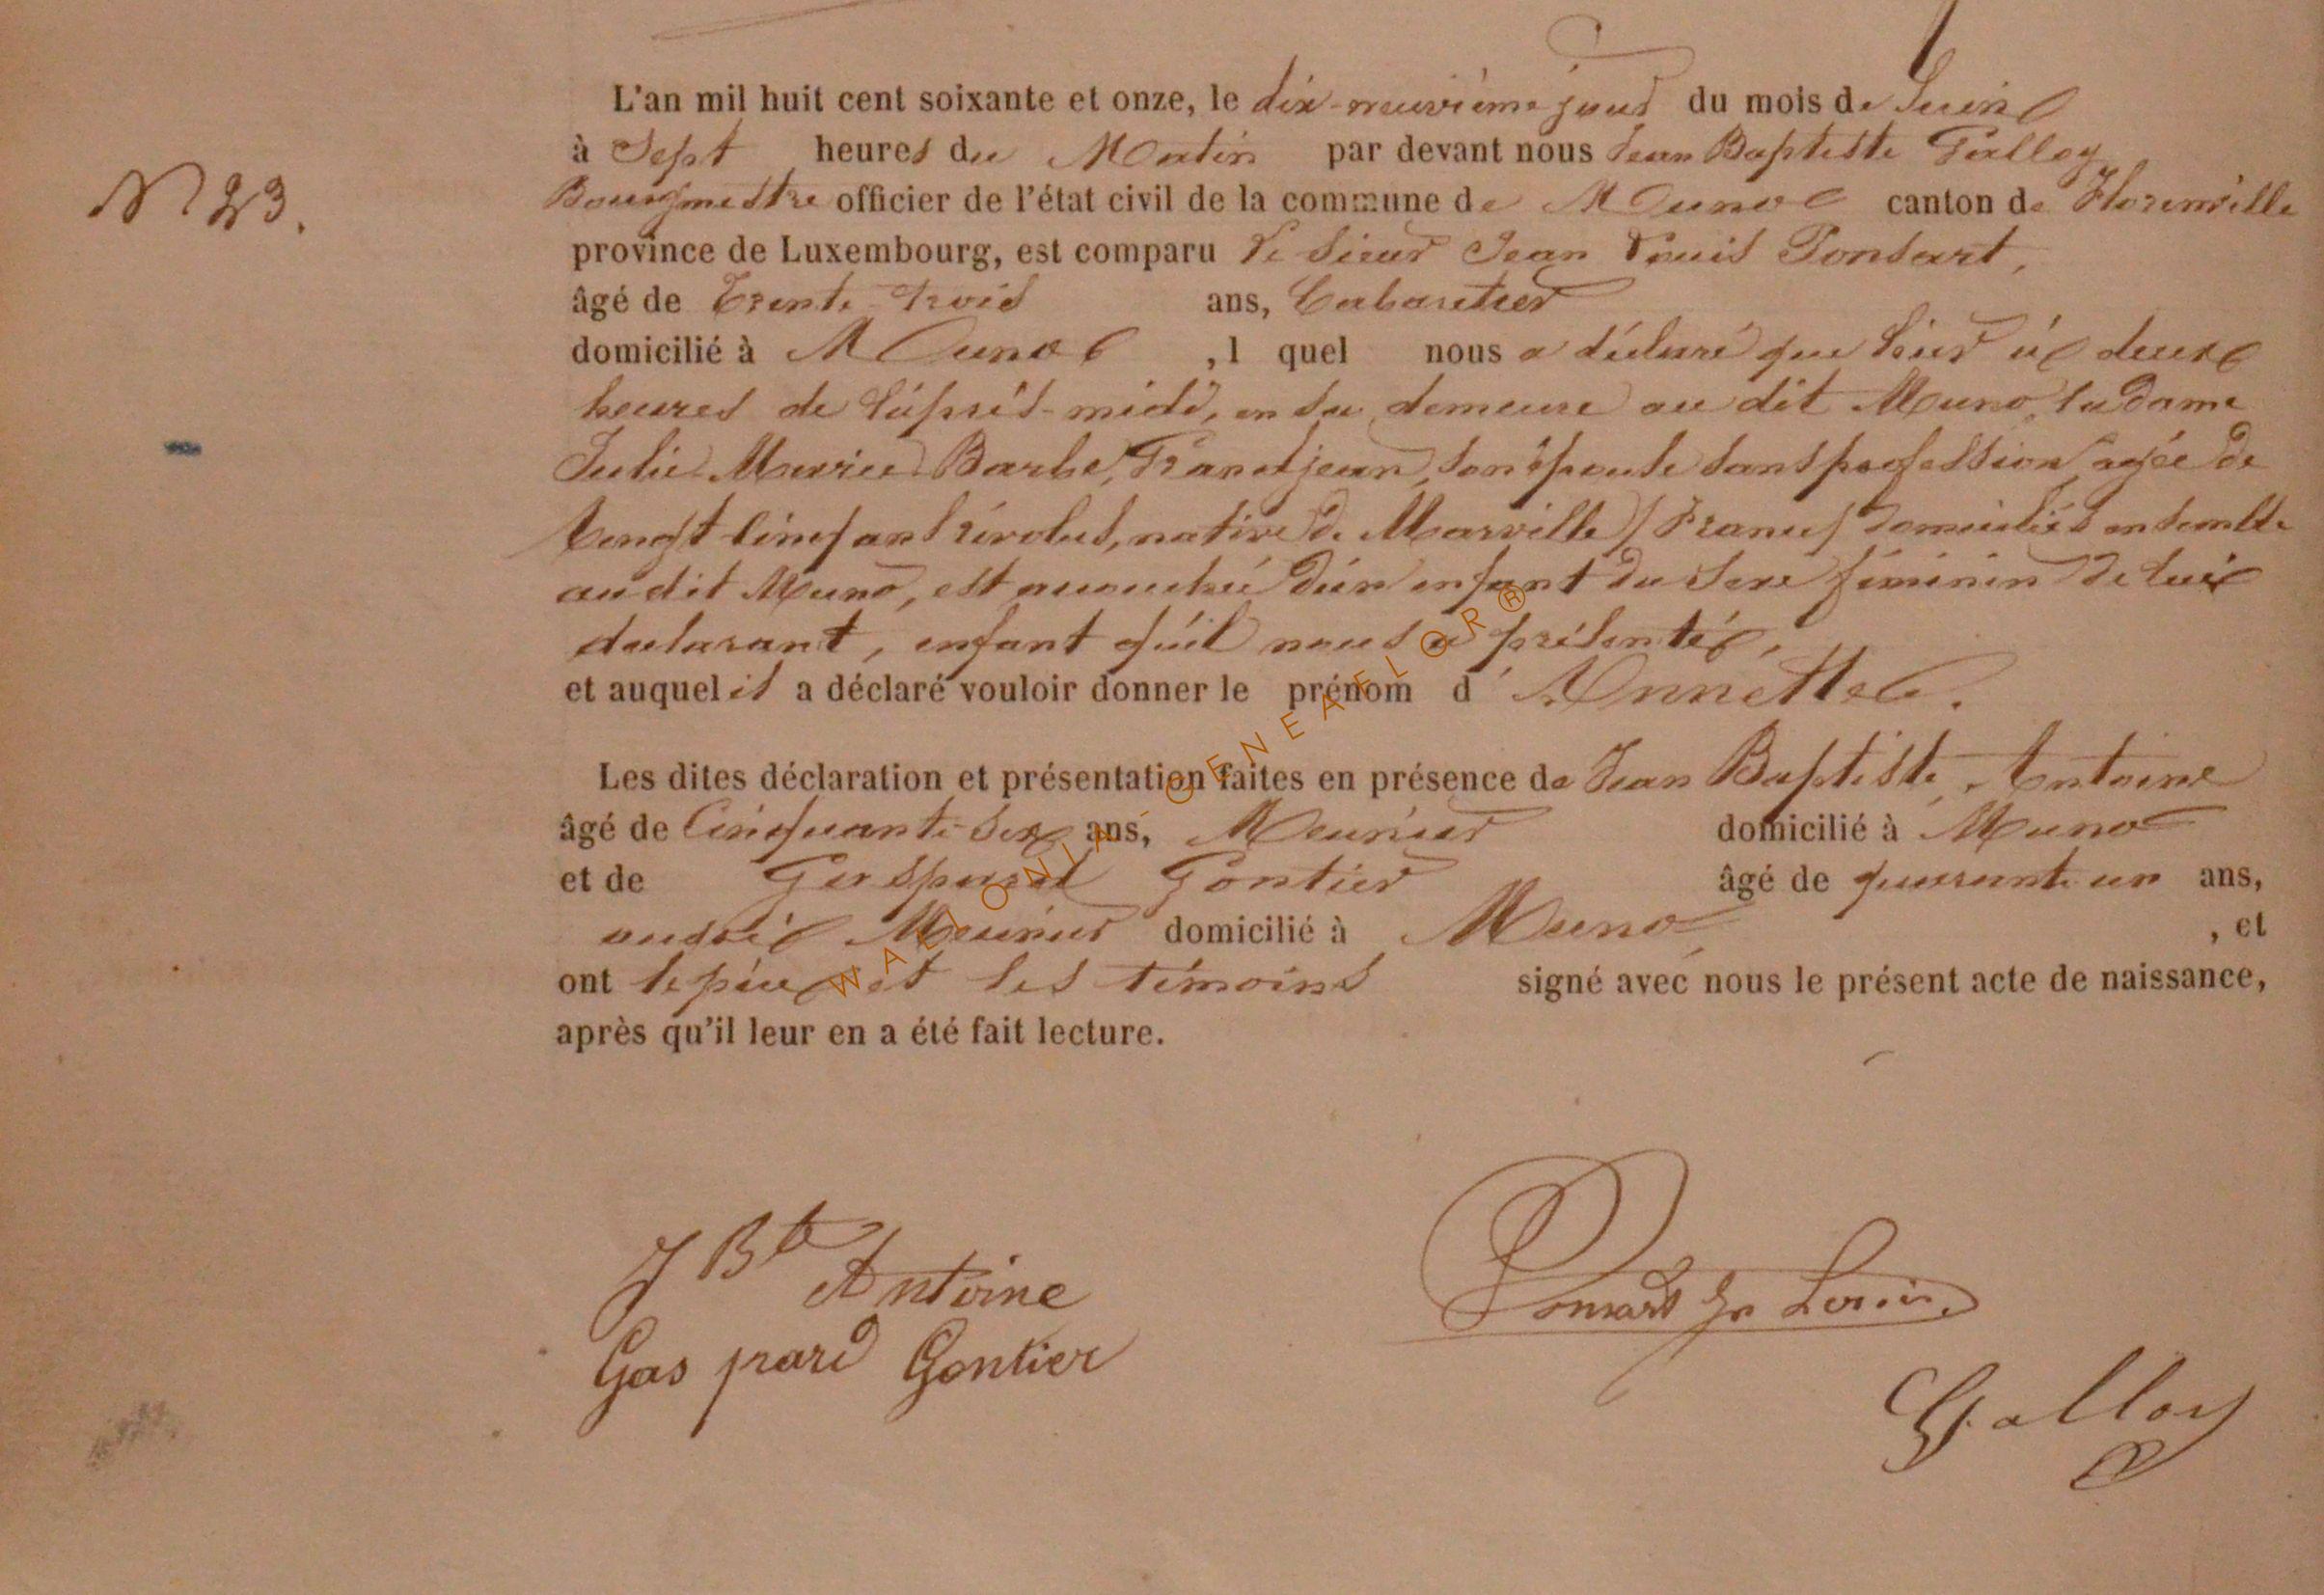 L'an mil huit cent soixante et onze, le dix-neuvième jour du mois de Juin
N° 23.
à Sept heures du Matin par devant nous Jean Baptiste Galloy
Bourgmestre officier de l'état civil de la commune de Muno canton de Florenville
province de Luxembourg, est comparu le Sieur Jean Louis Ponsart,
âgé de Trente-trois ans, Cabaretier
domicilié à Muno, l quel nous a déclaré que hier à deux
heures de l'après-midi, en sa demeure au dit Muno, la dame
Julie Marie Barbe, Grandjean, son épouse sans profession, agée de
Vingt Cinq ans révolus, native de Marville / France / domiciliés ensemble
audit Muno, est accouchée d'un enfant du sexe féminin de lui
déclarant, enfant qu'il nous a présenté,
et auquel il a déclaré vouloir donner le prénom d'Annette.
Les dites déclaration et présentation faites en présence de Jean Baptiste Antoine
âgé de Cinquante-six ans, Meunier domicilié à Muno
et de Gaspard Gontier âgé de quarante un ans,
aussi Meunier domicilié à Muno, et
ont le père et les témoins signé avec nous le présent acte de naissance,
après qu'il leur en a été fait lecture.
WALLONIA-GENEAFLOR®
J Bte Antoine
Ponsart Jn Louis
Gaspard Gontier
Galloy